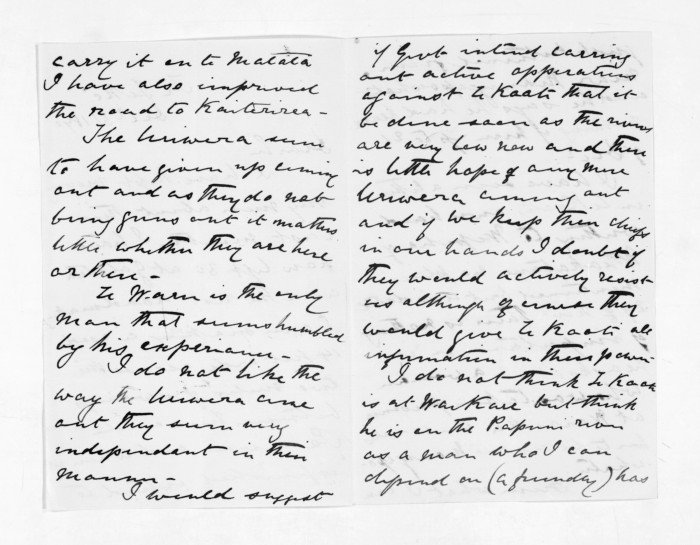 carry it on to Matata
I have also improved
the road to Kaiteriria -
The Uriwera seem
to have given up coming
out and as they do not
bring guns out it matters
little whether they are here
or there -
Te Waru is the only
man that seems humbled
by his experience -
I do not like the
way the Uriwera come
out they seem very
independant in their
manner -
I would suggest
if Govt intend carring
out active opperations
against Te Kooti that it
be done soon as the rivers
are very low now and there
is little hope of any more
Uriwera coming out
and if we keep their chiefs
in our hands I doubt if
they would actively resist
us although of course they
would give Te Kooti all
information in their power -
I do not think Te Kooti
is at but think
he is on the Papuni river
as a man who I can
depend on (a friendly) has